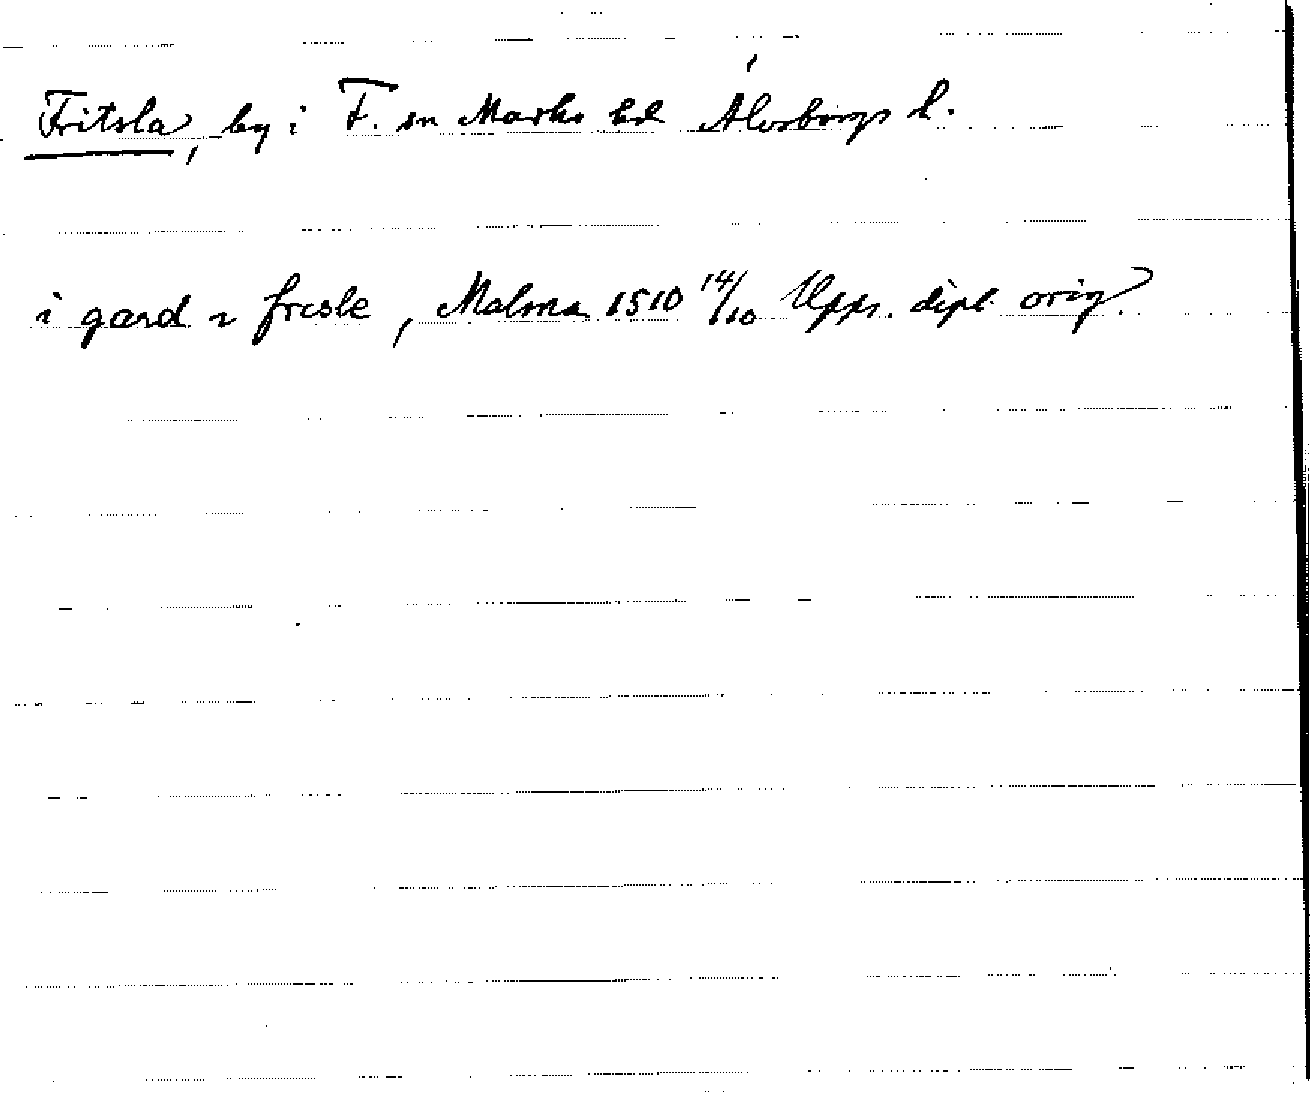 Fritsla, by i F. sn Marks hd Älvsborgs l.
i gard i fresle, Malma 1510 14/10 Upps. dipl orig.